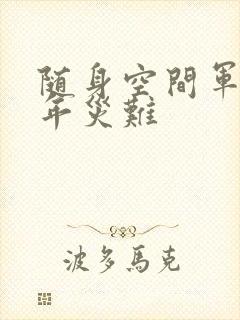 随身空間軍
年災難
波多馬克